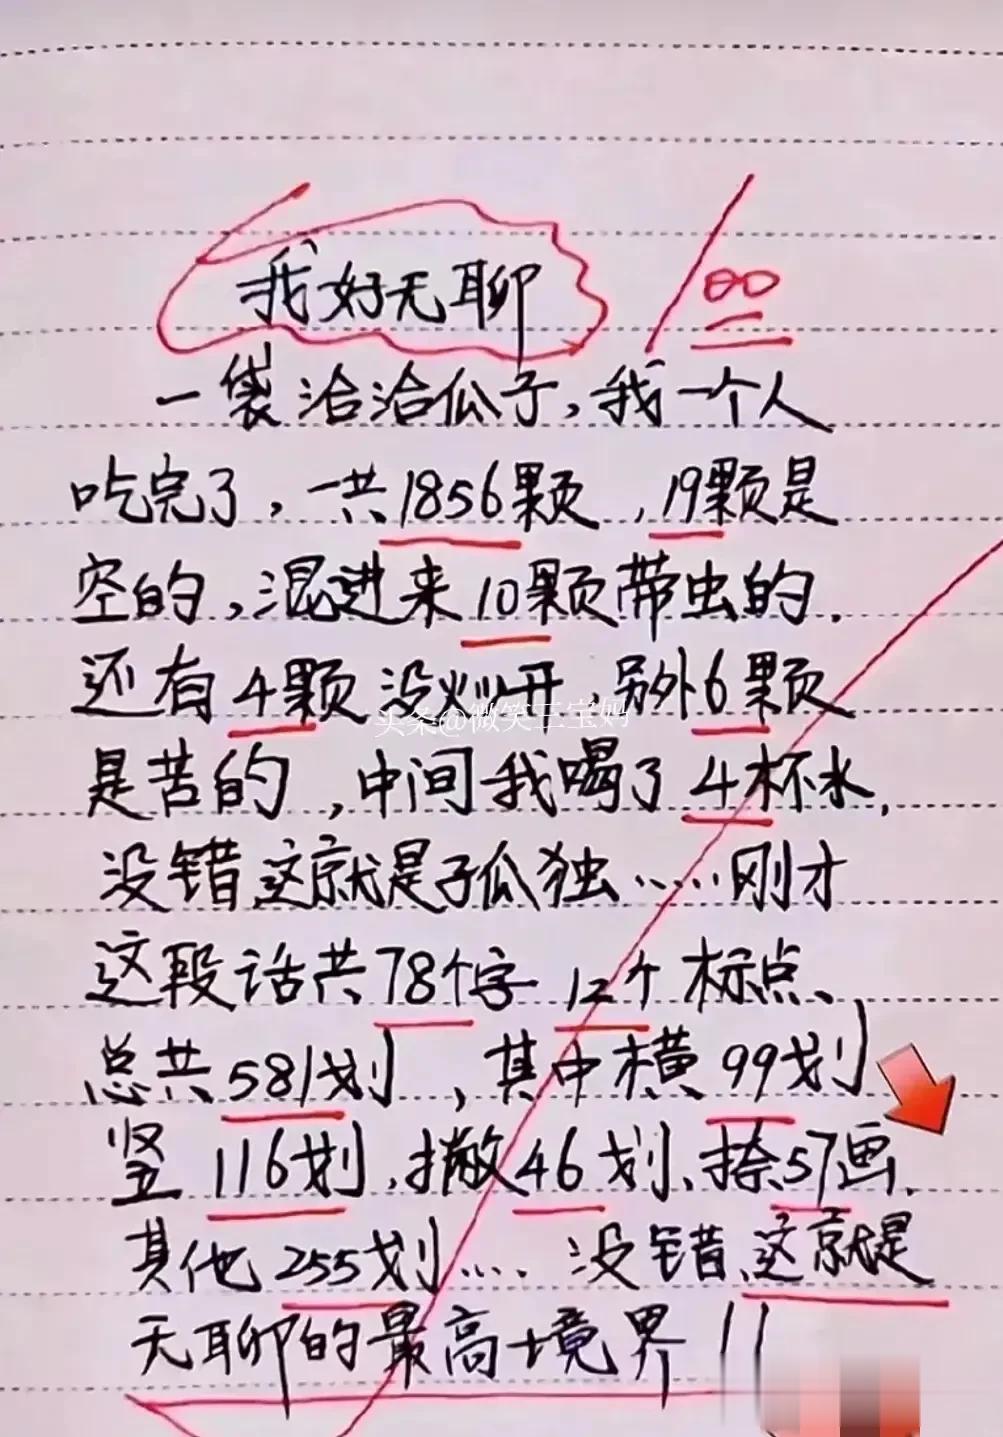 我好无聊
100
一袋洽洽瓜子,我一个人
吃完了,一共1856颗,19颗是
空的,混进来10颗带虫的.
还有4颗没炒开,另外6颗
头条@微笑三宝妈
是苦的,中间我喝了4杯水,
没错这就是孤独……刚才
这段话共78个字12个标点、
总共581划,其中横99划
竖116划,撇46划、捺57画.
其他255划…. 没错、这就是
无聊的最高境界!!